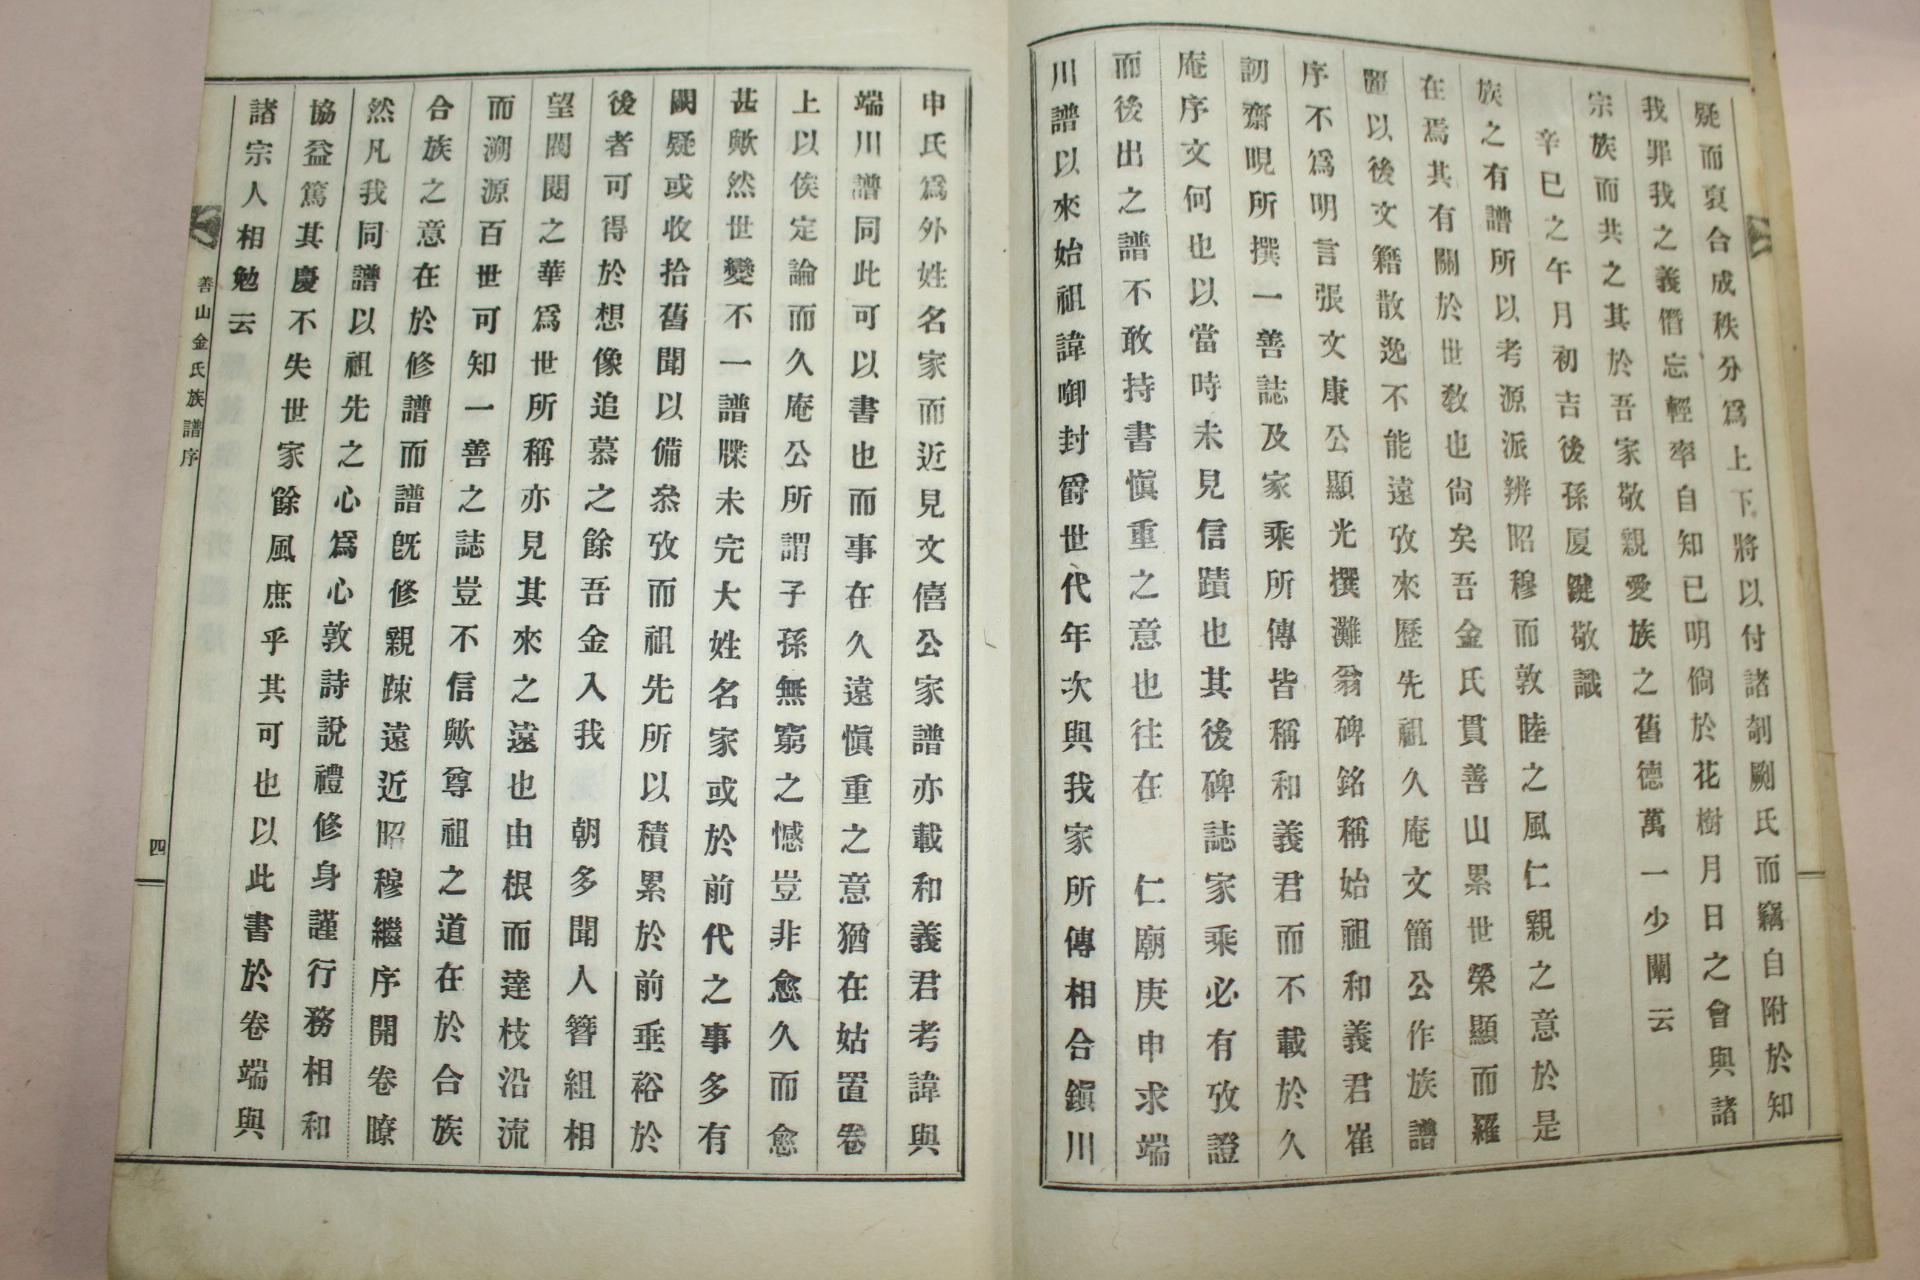 疑而裒合成秩分爲上下將以付諸剞劂氏而竊自附於知
我罪我之義僭忘輕率自知已明倘於花樹月日之會與諸
宗族而共之其於吾家敬親愛族之舊德萬一少闡云
辛巳之午月初吉後孫厦鍵敬識
族之有譜所以考源派辨昭穆而敦睦之風仁親之意於是
在焉其有關於世教也尙矣吾金氏貫善山累世榮顯而羅
麗以後文籍散逸不能遠攷來歷先祖久庵文簡公作族譜
序不爲明言張文康公顯光撰灘翁碑銘稱始祖和義君崔
訒齋晛所撰一善誌及家乘所傳皆稱和義君而不載於久
庵序文何也以當時未見信蹟也其後碑誌家乘必有攷證
而後出之譜不敢持書愼重之意也往在　仁廟庚申求端
川譜以來始祖諱啣封爵世代年次與我家所傳相合鎭川
申氏爲外姓名家而近見文僖公家譜亦載和義君考諱與
端川譜同此可以書也而事在久遠愼重之意猶在姑置卷
上以俟定論而久庵公所謂子孫無窮之憾豈非愈久而愈
甚歟然世變不一譜牒未完大姓名家或於前代之事多有
闕疑或收拾舊聞以備叅攷而祖先所以積累於前垂裕於
後者可得於想像追慕之餘吾金入我　朝多聞人簪組相
望閥閱之華爲世所稱亦見其來之遠也由根而達枝沿流
而溯源百世可知一善之誌豈不信歟尊祖之道在於合族
合族之意在於修譜而譜旣修親踈遠近昭穆繼序開卷瞭
然凡我同譜以祖先之心爲心敦詩說禮修身謹行務相和
協益篤其慶不失世家餘風庶乎其可也以此書於卷端與
諸宗人相勉云
善山金氏族譜序
四